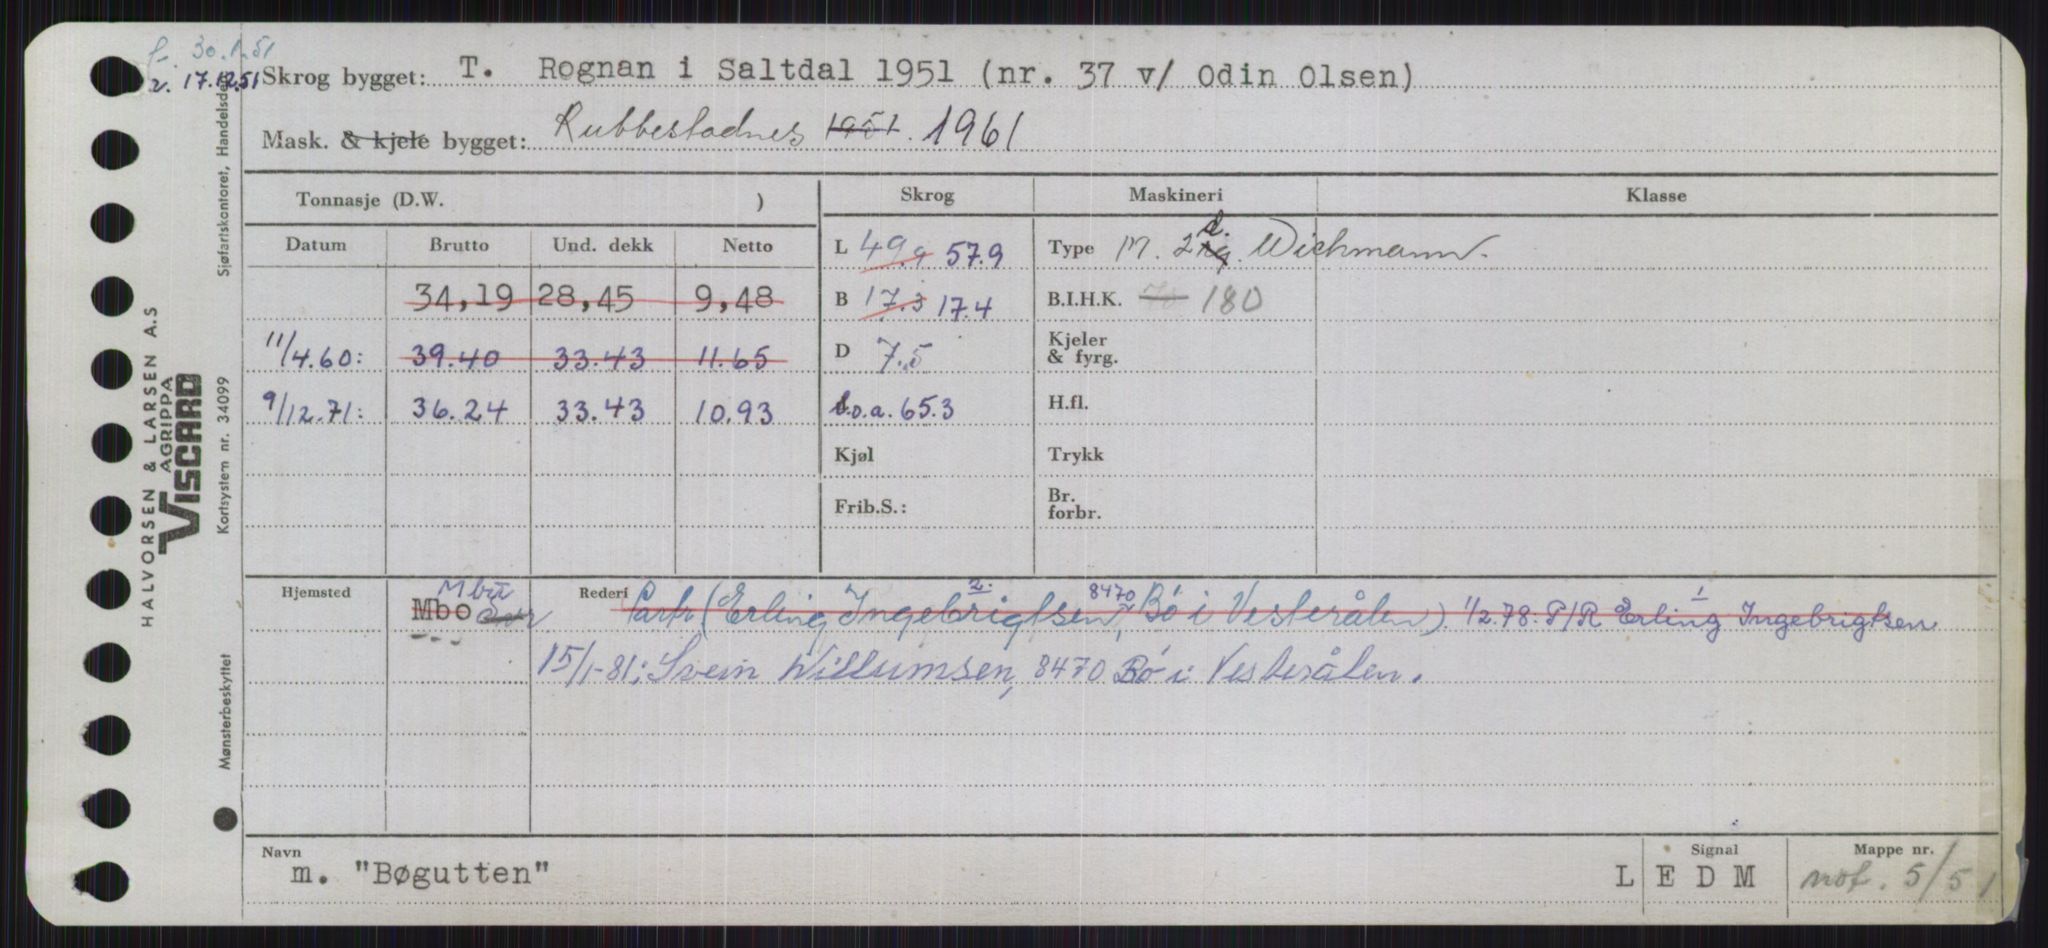 f. 30.1.51
r. 17.12.51
Skrog bygget: T. Rognan i Saltdal 1951 (nr. 37 v/ Odin Olsen)
Mask. & kjele bygget: Rubbestadnes 1951. 1961
Tonnasje (D.W. )
Skrog Maskineri Klasse
Datum Brutto Und. dekk Netto
L 49.9 57.9 Type M. 2 Wichmann.
34,19 28,45 9,48
B 17.3 17.4 B.I.H.K. 70 180
11/4.60: 39.40 33.43 11.65
D 7.5 Kjeler & fyrg.
9/12.71: 36.24 33.43 10.93
l.o.a. 65.3 H.fl.
Kjøl Trykk
Frib.S.: Br. forbr.
Hjemsted Mbo Rederi Partr. (Erling Ingebrigtsen, 8470 Bø i Vesterålen). 1/2.78: P/R Erling Ingebrigtsen
15/1-81: Svein Willumsen, 8470 Bø i Vesterålen.
Navn m. "Bøgutten"
Signal L E D M
Mappe nr. not. 5/51
HALVORSEN & LARSEN A.S
AGRIPPA
VISCARD
Sjøfartskontoret, Handelsdep.
Kortsystem nr. 34099
Mønsterbeskyttet